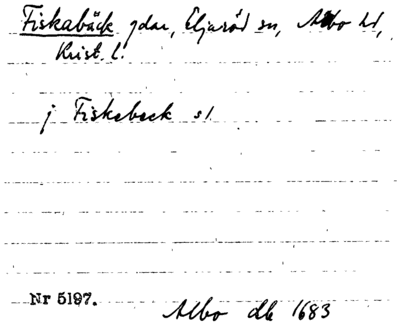 Fiskabäck gdar, Eljaröd sn, Albo hd,
Krist. l.
j Fiskebeck sl
Nr 5197.
Albo db 1683